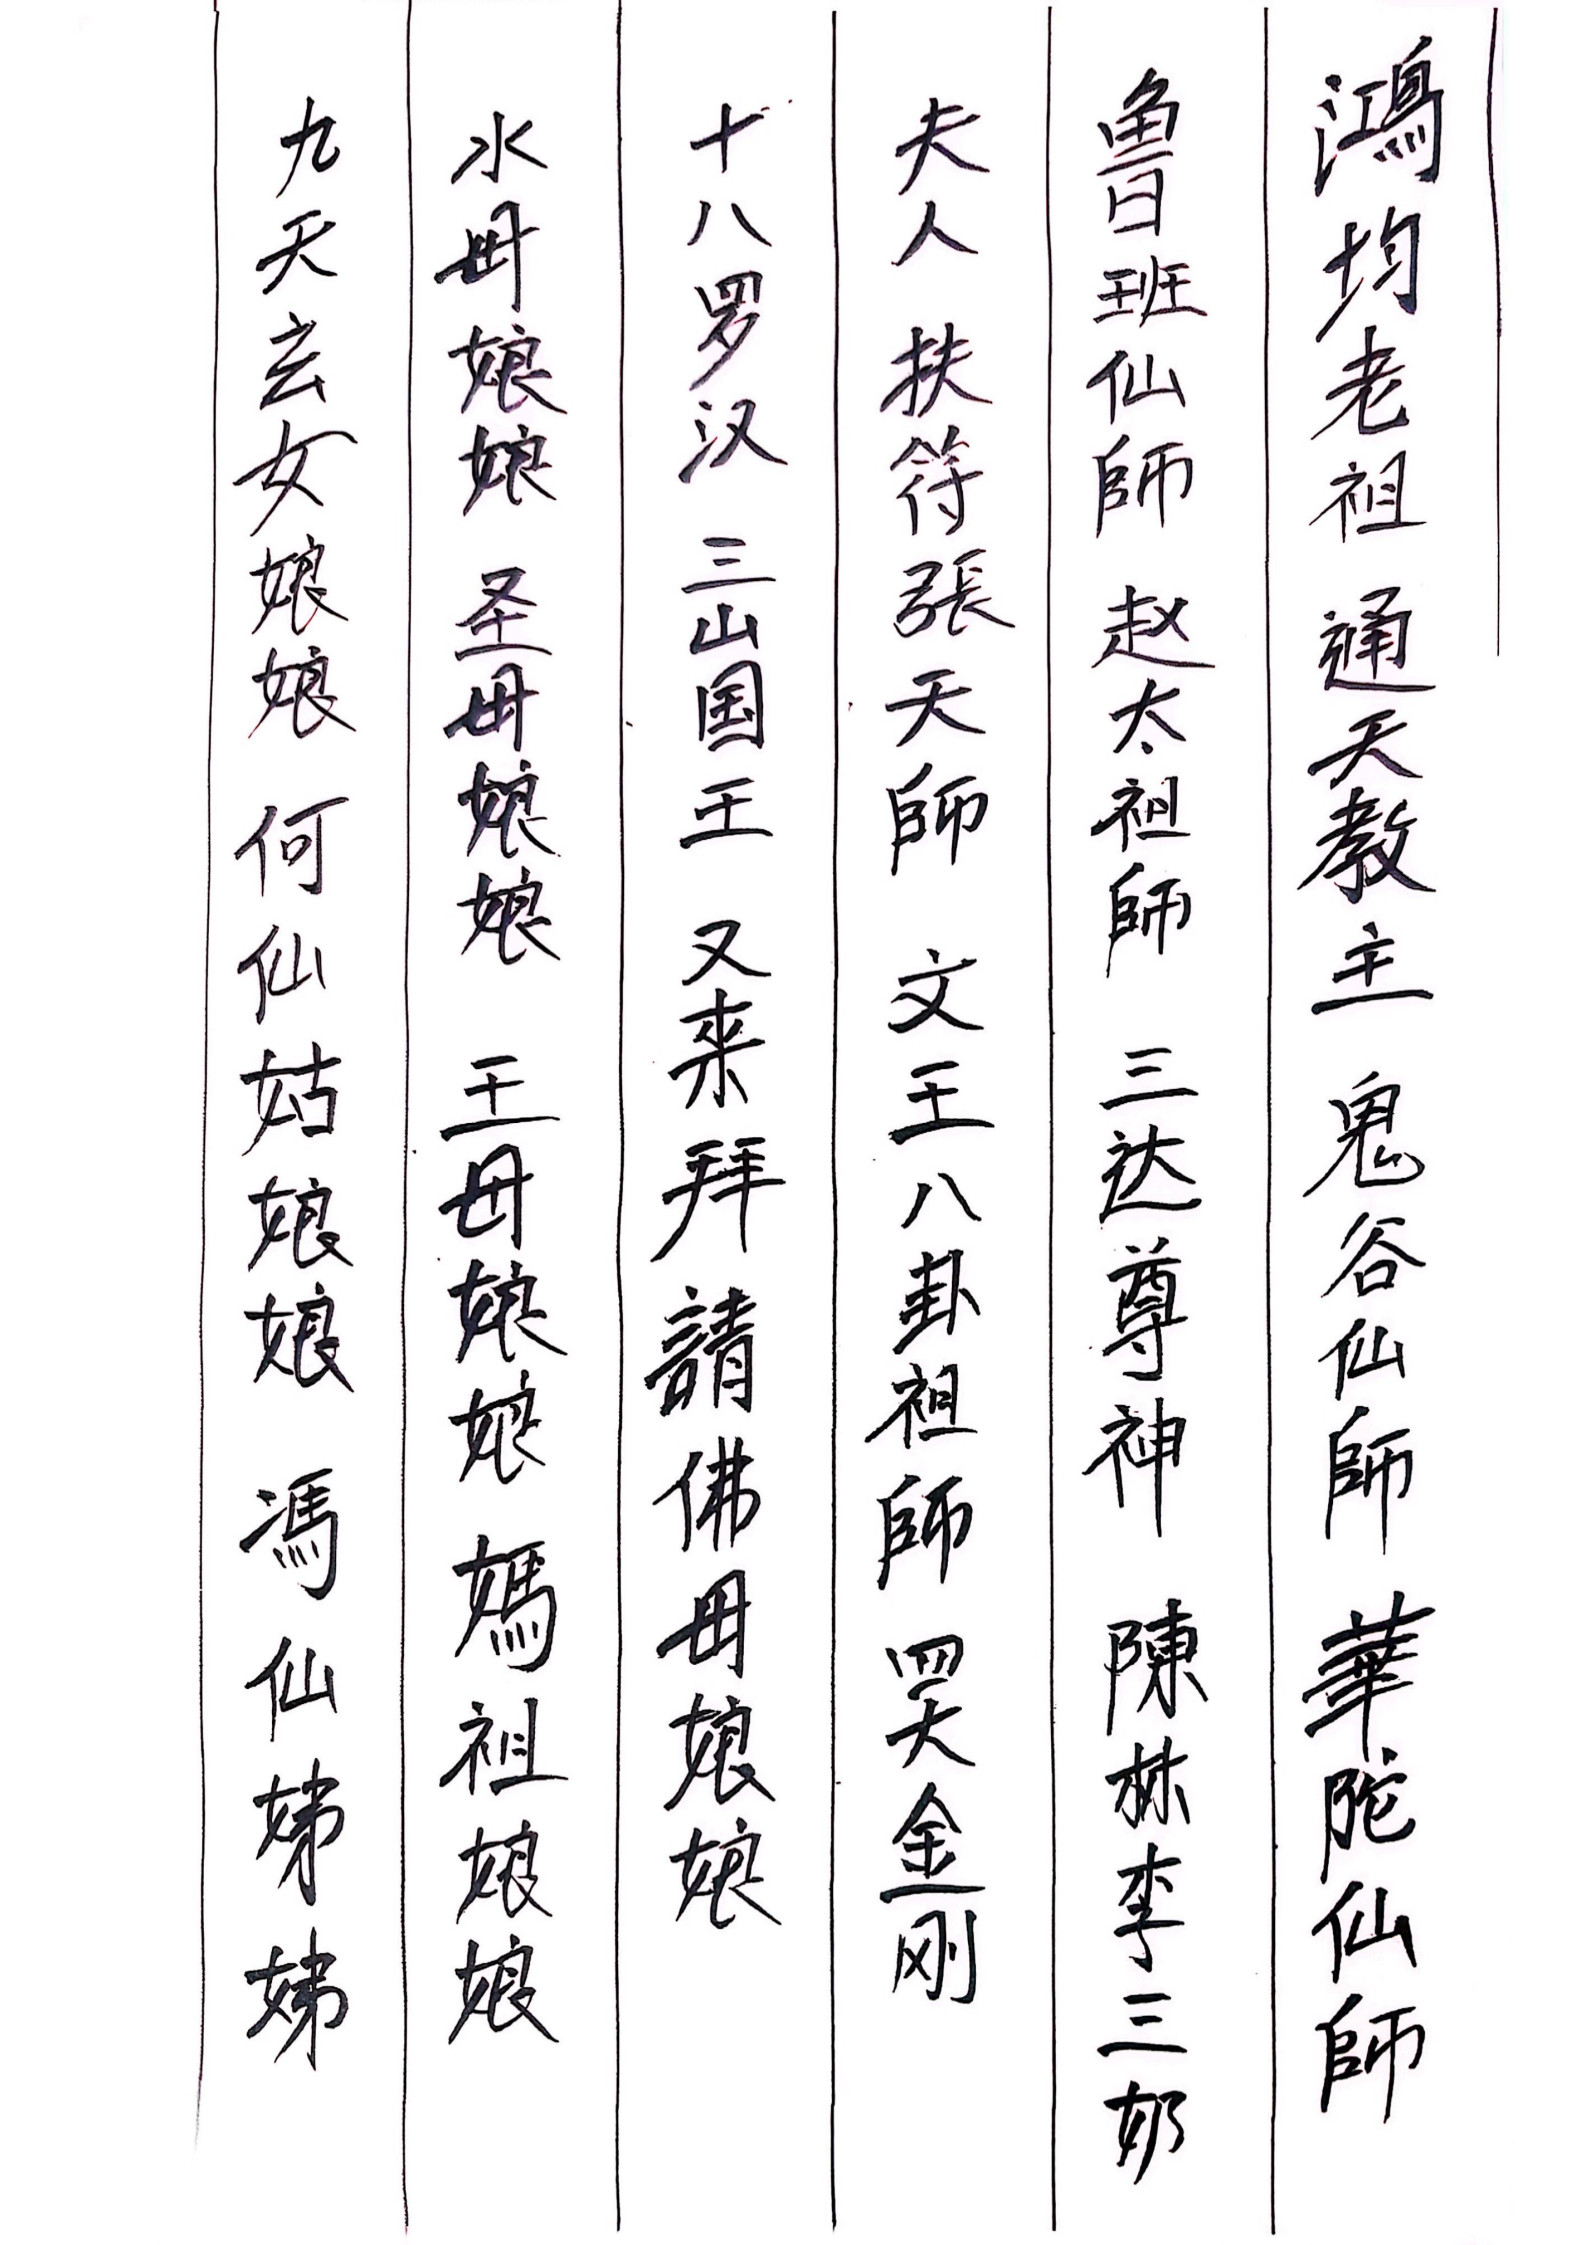 鴻均老祖 通天教主 鬼谷仙師 華陀仙師
魯班仙師 赵太祖師 三达尊神 陳林李三奶
夫人 扶符張天師 文王八卦祖師 四大金刚
十八罗汉 三山国王 又來拜請佛母娘娘
水母娘娘 圣母娘娘 王母娘娘 媽祖娘娘
九天玄女娘娘 何仙姑娘娘 馮仙娣娣